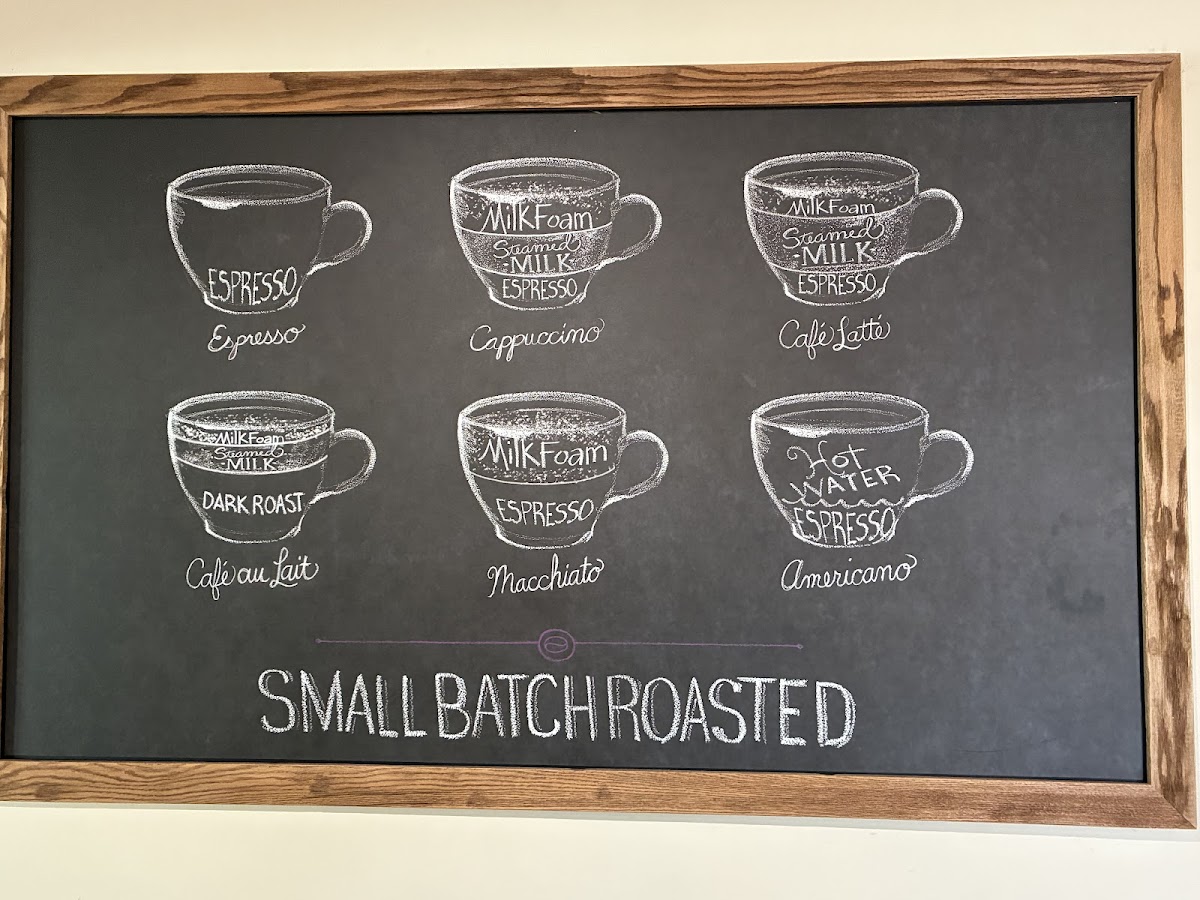 ESPRESSO
Espresso
MilkFoam
Steamed
·MILK·
ESPRESSO
Cappuccino
MilkFoam
Steamed
·MILK·
ESPRESSO
Café Latté
MilkFoam
Steamed
·MILK·
DARK ROAST
Café au Lait
MilkFoam
ESPRESSO
Macchiato
Hot
WATER
ESPRESSO
Americano
SMALL BATCH ROASTED